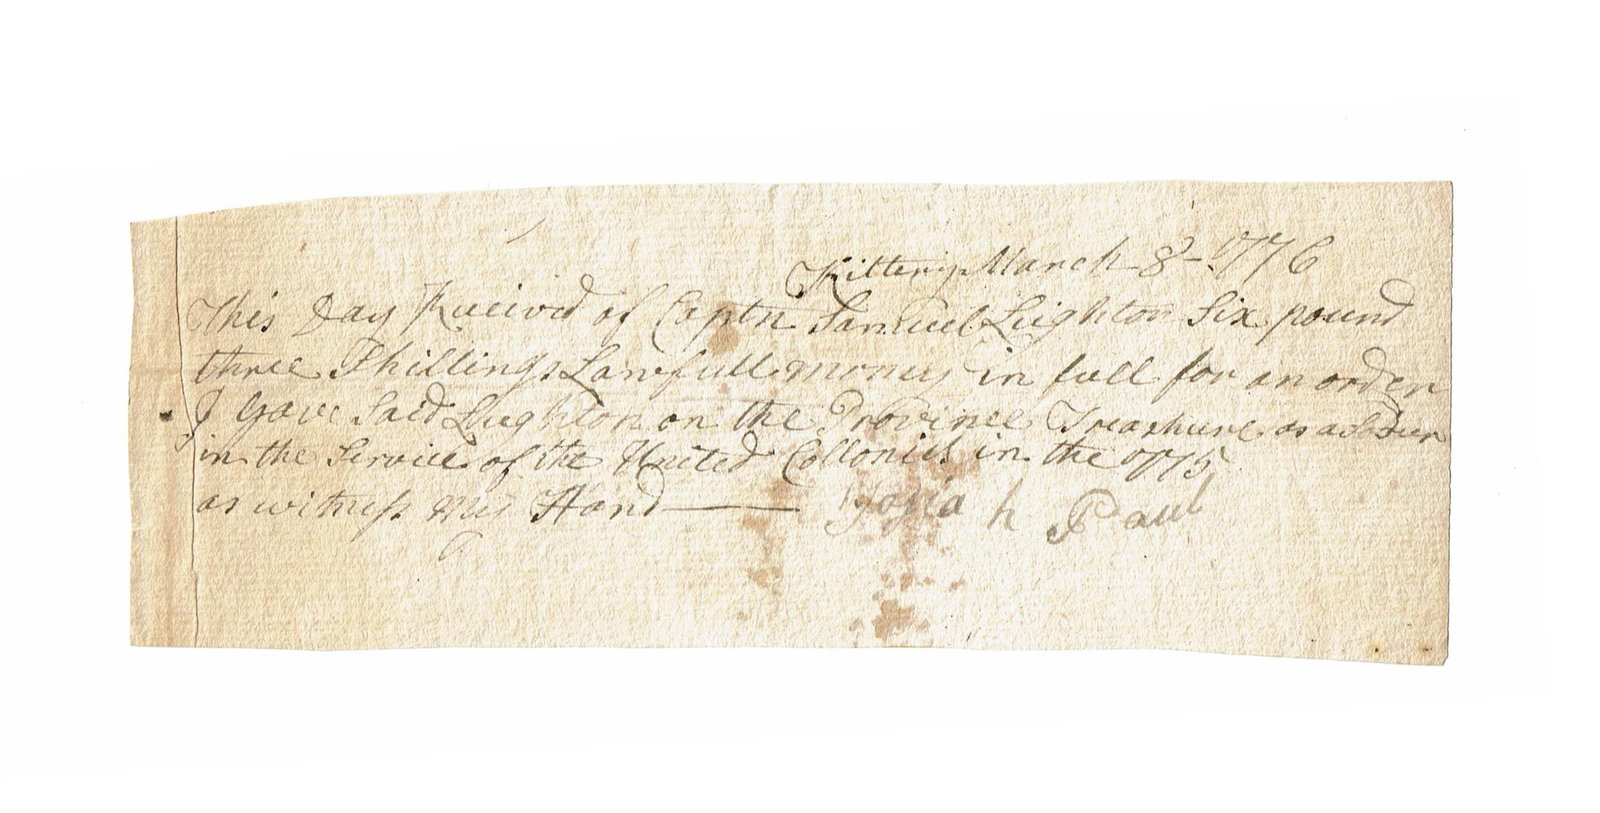 Kittery March 8 - 1776
This Day Receivd of Captn Samuel Lighton Six pound
three Shillings Lawfull money in full for an order
I Gave Said Lighton on the Province Treashure as a Soldier
in the Service of the United Collonies in the 1775
as witness my Hand Josiah Paul